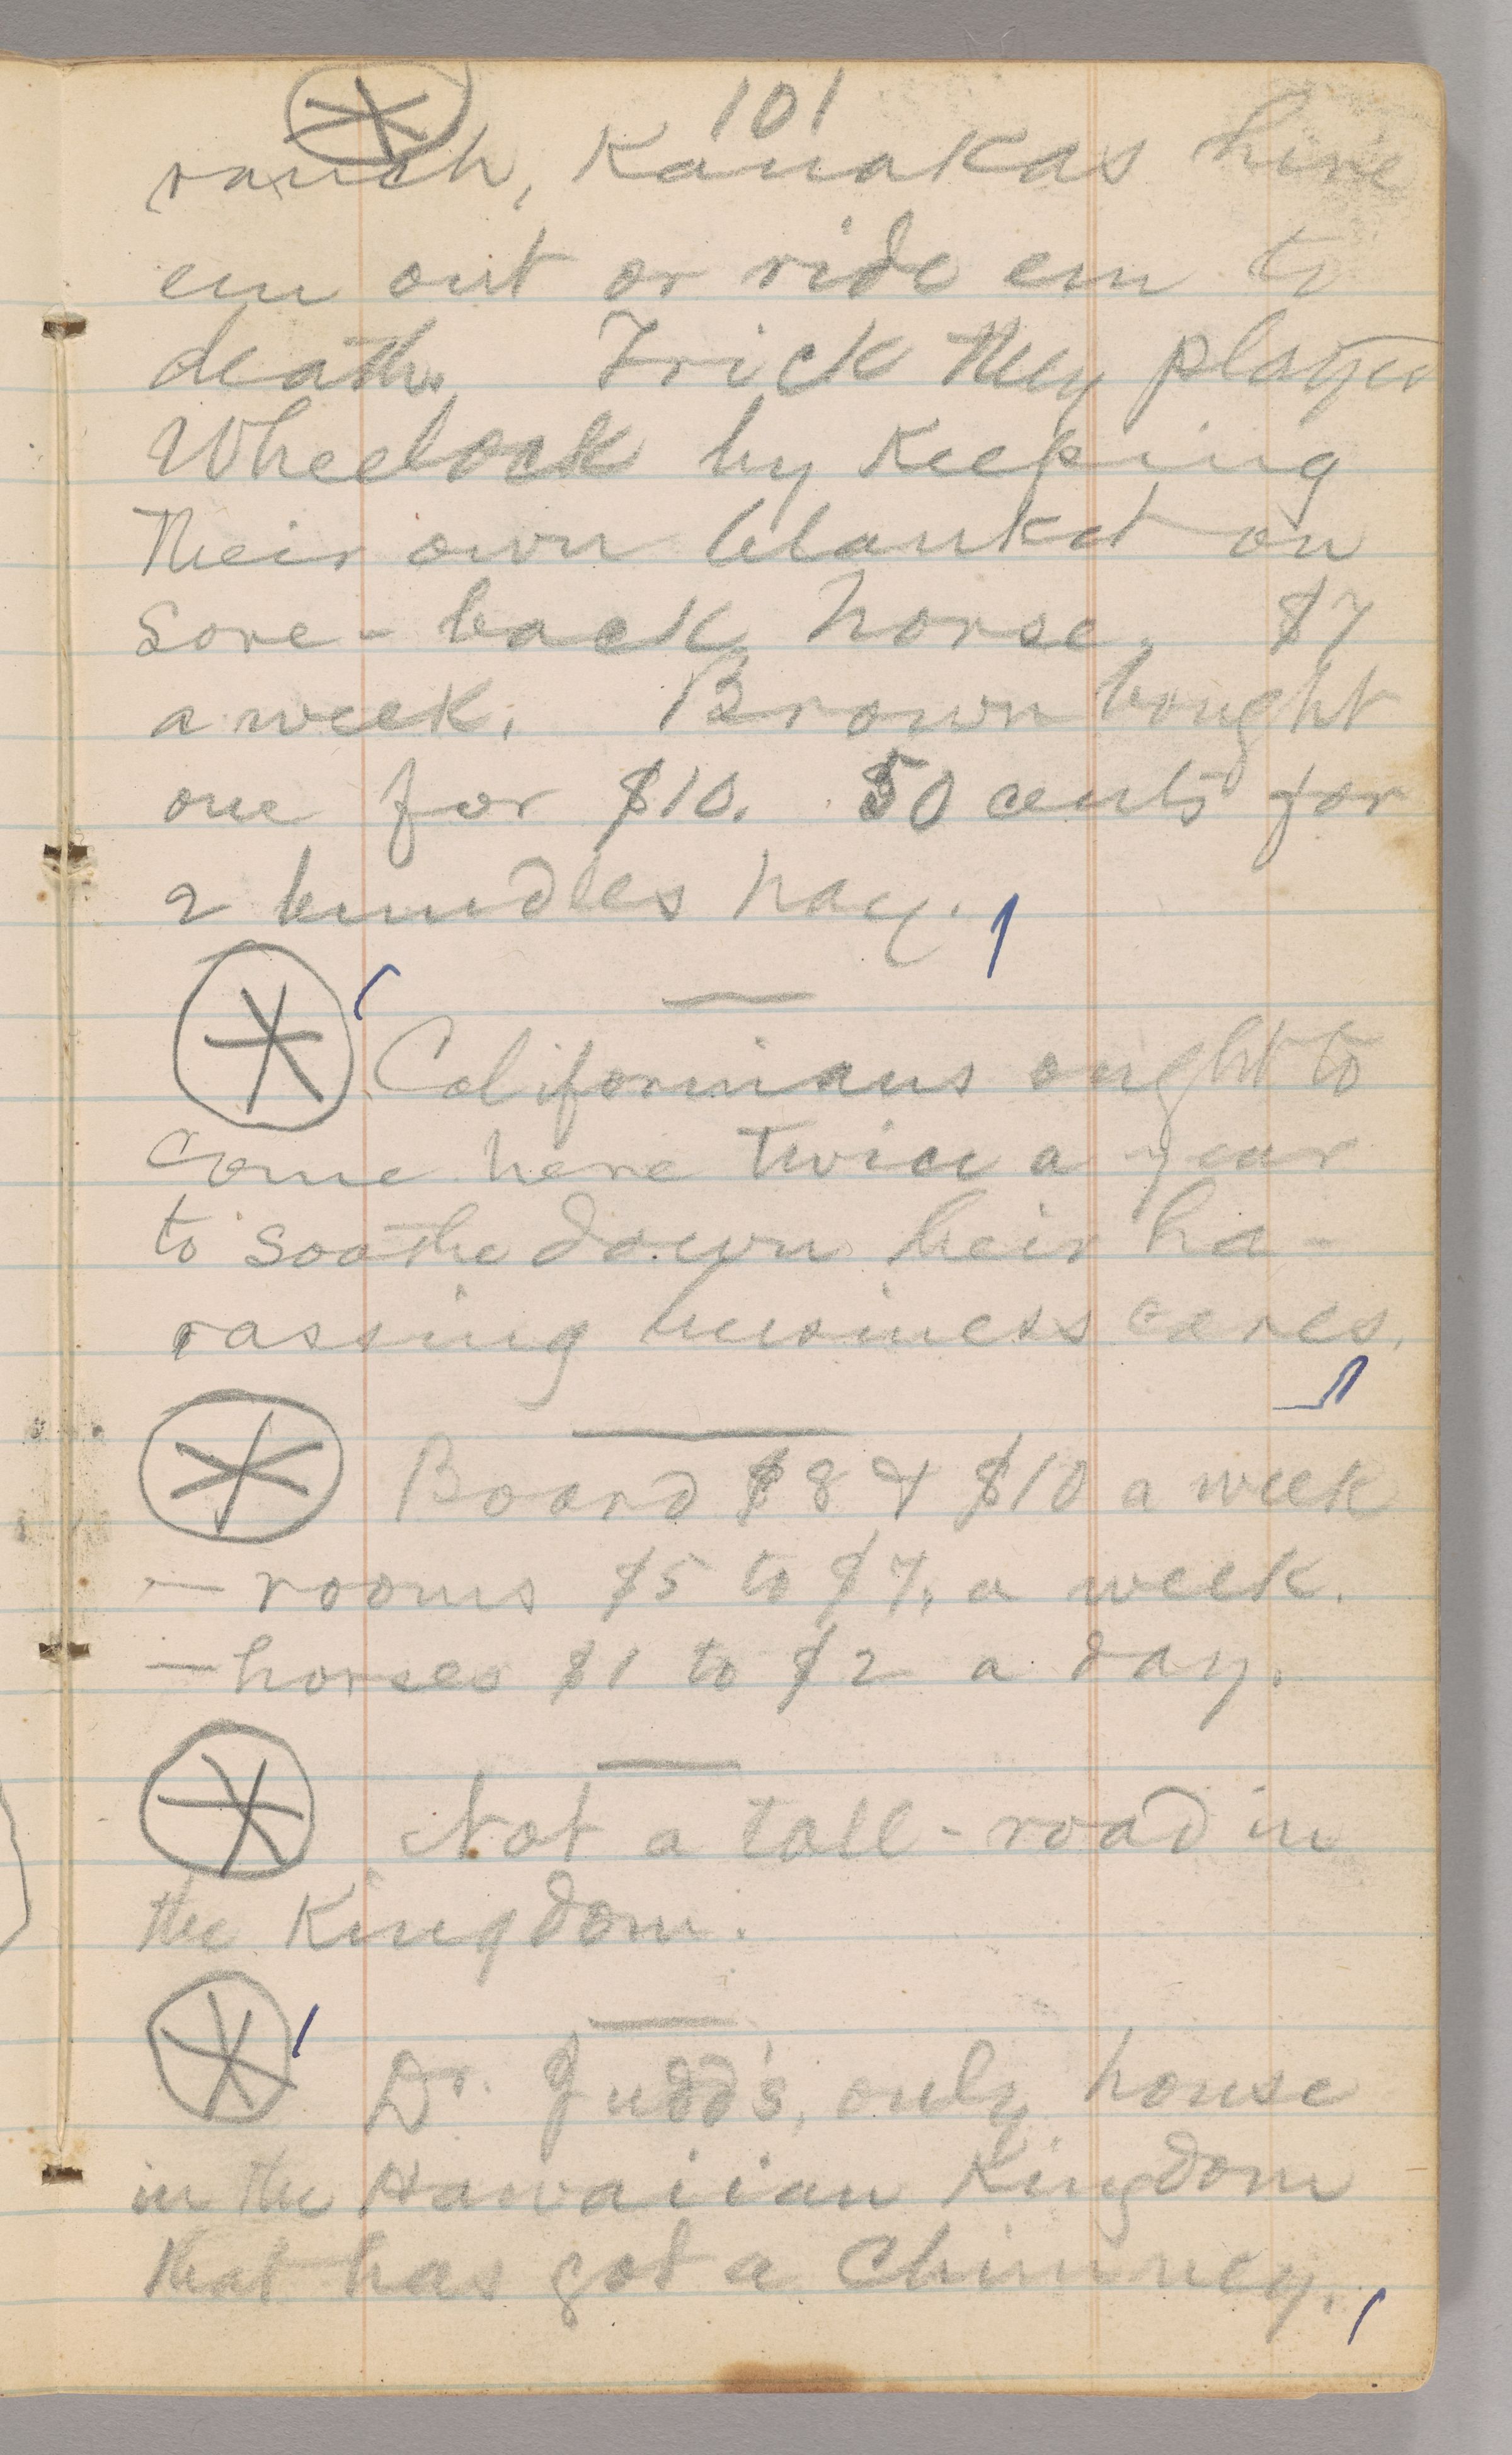 101
ranch, Kanakas hire
em out or ride em to
death. Trick they played
Wheelock by keeping
their own blanket on
sore-back horse, $7
a week. Brown bought
one for $10. 50 cents for
2 bundles hay.
Californians ought to
come here twice a year
to soothe down their ha-
rassing business cares.
Board $8 & $10 a week
— rooms $5 to $7. a week.
— horses $1 to $2 a day.
Not a toll-road in
the Kingdom.
Dr. Judd's, only house
in the Hawaiian Kingdom
that has got a chimney.